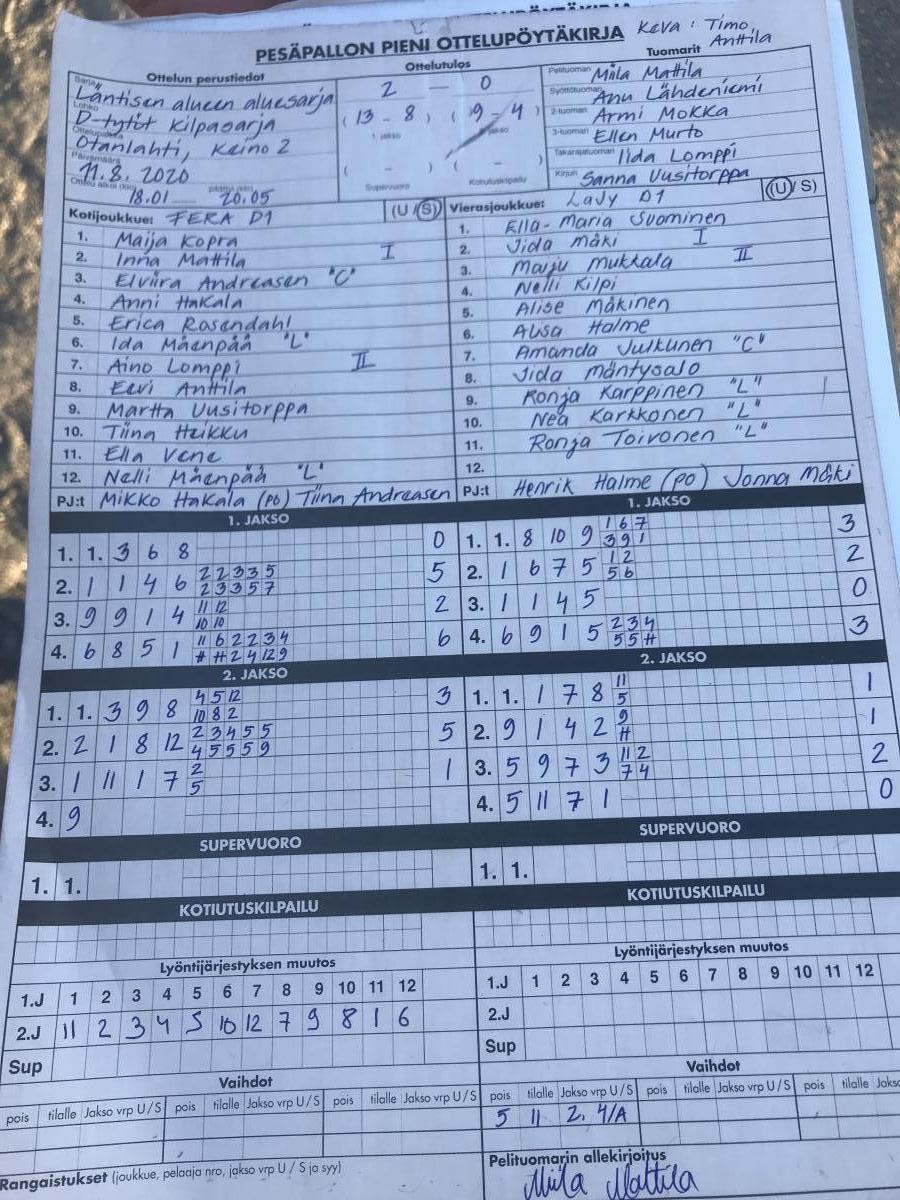 PESÄPALLON PIENI OTTELUPÖYTÄKIRJA Keva: Timo Anttila
Ottelun perustiedot
Ottelutulos
Tuomarit
Sarja Läntisen alueen aluesarja
Lohko D-tytöt Kilpasarja
Ottelupaikka Otanlahti, Keino 2
Päivämäärä 11.8. 2020
Ottelu alkoi (klo) 18.01 päättyi (klo) 20.05
2 — 0
(13 - 8) (9 - 4)
1. jakso 2. jakso
( - ) ( - )
Supervuoro Kotiutuskilpailu
Pelituomari Miila Mattila
Syöttötuomari Anu Lähdeniemi
2-tuomari Armi Mokka
3-tuomari Ellen Murto
Takarajatuomari Iida Lomppi
Kirjuri Sanna Uusitorppa
Kotijoukkue: FERA D1 (U / S)
1. Maija Kopra
2. Inna Mattila I
3. Elviira Andreasen "C"
4. Anni Hakala
5. Erica Rosendahl
6. Ida Mäenpää "L"
7. Aino Lomppi II
8. Eevi Anttila
9. Martta Uusitorppa
10. Tiina Heikku
11. Ella Vene
12. Nelli Mäenpää "L"
PJ:t Mikko Hakala (PO) Tiina Andreasen
Vierasjoukkue: LaJy D1 (U / S)
1. Ella-Maria Suominen
2. Iida Mäki I
3. Maiju Mukkala II
4. Nelli Kilpi
5. Alise Mäkinen
6. Alisa Halme
7. Amanda Julkunen "C"
8. Iida Mäntysalo
9. Ronja Karppinen "L"
10. Nea Karkkonen "L"
11. Ronja Toivonen "L"
12.
PJ:t Henrik Halme (PO) Jonna Mäki
1. JAKSO
1. 1. 3 6 8 0
2. 1 1 4 6 2 2 3 3 5 5
2 3 3 5 7
3. 9 9 1 4 11 12 2
10 10
4. 6 8 5 1 11 6 2 2 3 4 6
# # 2 4 12 9
1. JAKSO
1. 1. 8 10 9 1 6 7 3
3 9 1
2. 1 6 7 5 1 2 2
5 6
3. 1 1 4 5 0
4. 6 9 1 5 2 3 4 3
5 5 #
2. JAKSO
1. 1. 3 9 8 4 5 12 3
10 8 2
2. 2 1 8 12 2 3 4 5 5 5
4 5 5 5 9
3. 1 11 1 7 2 1
5
4. 9
2. JAKSO
1. 1. 1 7 8 11 1
5
2. 9 1 4 2 9 1
#
3. 5 9 7 3 11 2 2
7 4
4. 5 11 7 1 0
SUPERVUORO
1. 1.
SUPERVUORO
1. 1.
KOTIUTUSKILPAILU
KOTIUTUSKILPAILU
Lyöntijärjestyksen muutos
1.J 1 2 3 4 5 6 7 8 9 10 11 12
2.J 11 2 3 4 5 10 12 7 9 8 1 6
Sup
Lyöntijärjestyksen muutos
1.J 1 2 3 4 5 6 7 8 9 10 11 12
2.J
Sup
Vaihdot
pois tilalle Jakso vrp U / S pois tilalle Jakso vrp U / S pois tilalle Jakso vrp U / S
Vaihdot
pois tilalle Jakso vrp U / S pois tilalle Jakso vrp U / S pois tilalle Jakso
5 11 2. 4/A
Rangaistukset (joukkue, pelaaja nro, jakso vrp U / S ja syy)
Pelituomarin allekirjoitus
Miila Mattila